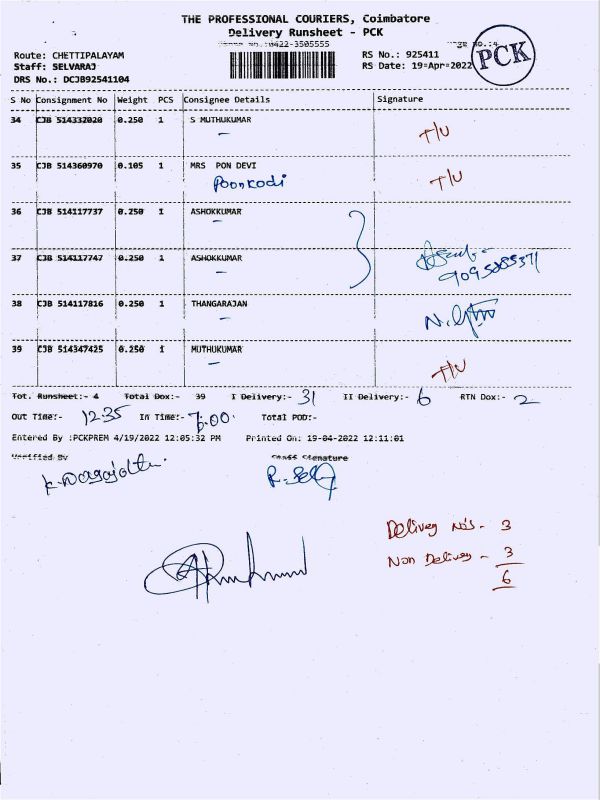 THE PROFESSIONAL COURIERS, Coimbatore
Delivery Runsheet - PCK
0422-3505555
No.:4
PCK
Route: CHETTIPALAYAM
RS No.: 925411
Staff: SELVARAJ
RS Date: 19-Apr-2022
DRS No.: DCJB92541104
S No Consignment No Weight PCS Consignee Details Signature
34 CJB 514332020 0.250 1 S MUTHUKUMAR T/U
35 CJB 514360970 0.105 1 MRS PON DEVI T/U
Poonkodi
36 CJB 514117737 0.250 1 ASHOKKUMAR
37 CJB 514117747 0.250 1 ASHOKKUMAR
38 CJB 514117816 0.250 1 THANGARAJAN
39 CJB 514347425 0.250 1 MUTHUKUMAR T/U
Tot. Runsheet:- 4 Total Dox:- 39 I Delivery:- 31 II Delivery:- 6 RTN Dox:- 2
Out Time:- 12.35 In Time:- 7.00 Total POD:-
Entered By :PCKPREM 4/19/2022 12:05:32 PM Printed On: 19-04-2022 12:11:01
Verified By Staff Signature
Delivey No's - 3
Non Delivey - 3
6